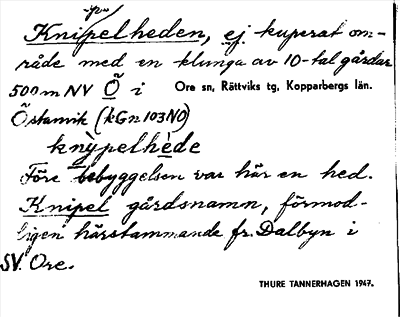 -yp-
Knipelheden, ej kuperat om-
råde med en klunga av 10-tal gårdar
500 m NV Ö i Ore sn, Rättviks tg, Kopparbergs län.
Östanvik (kGn 103 NO)
knỳpelhède
Före bebyggelsen var här en hed.
Knipel gårdsnamn, förmod-
ligen härstammande fr. Dalbyn i
SV. Ore.
THURE TANNERHAGEN 1947.